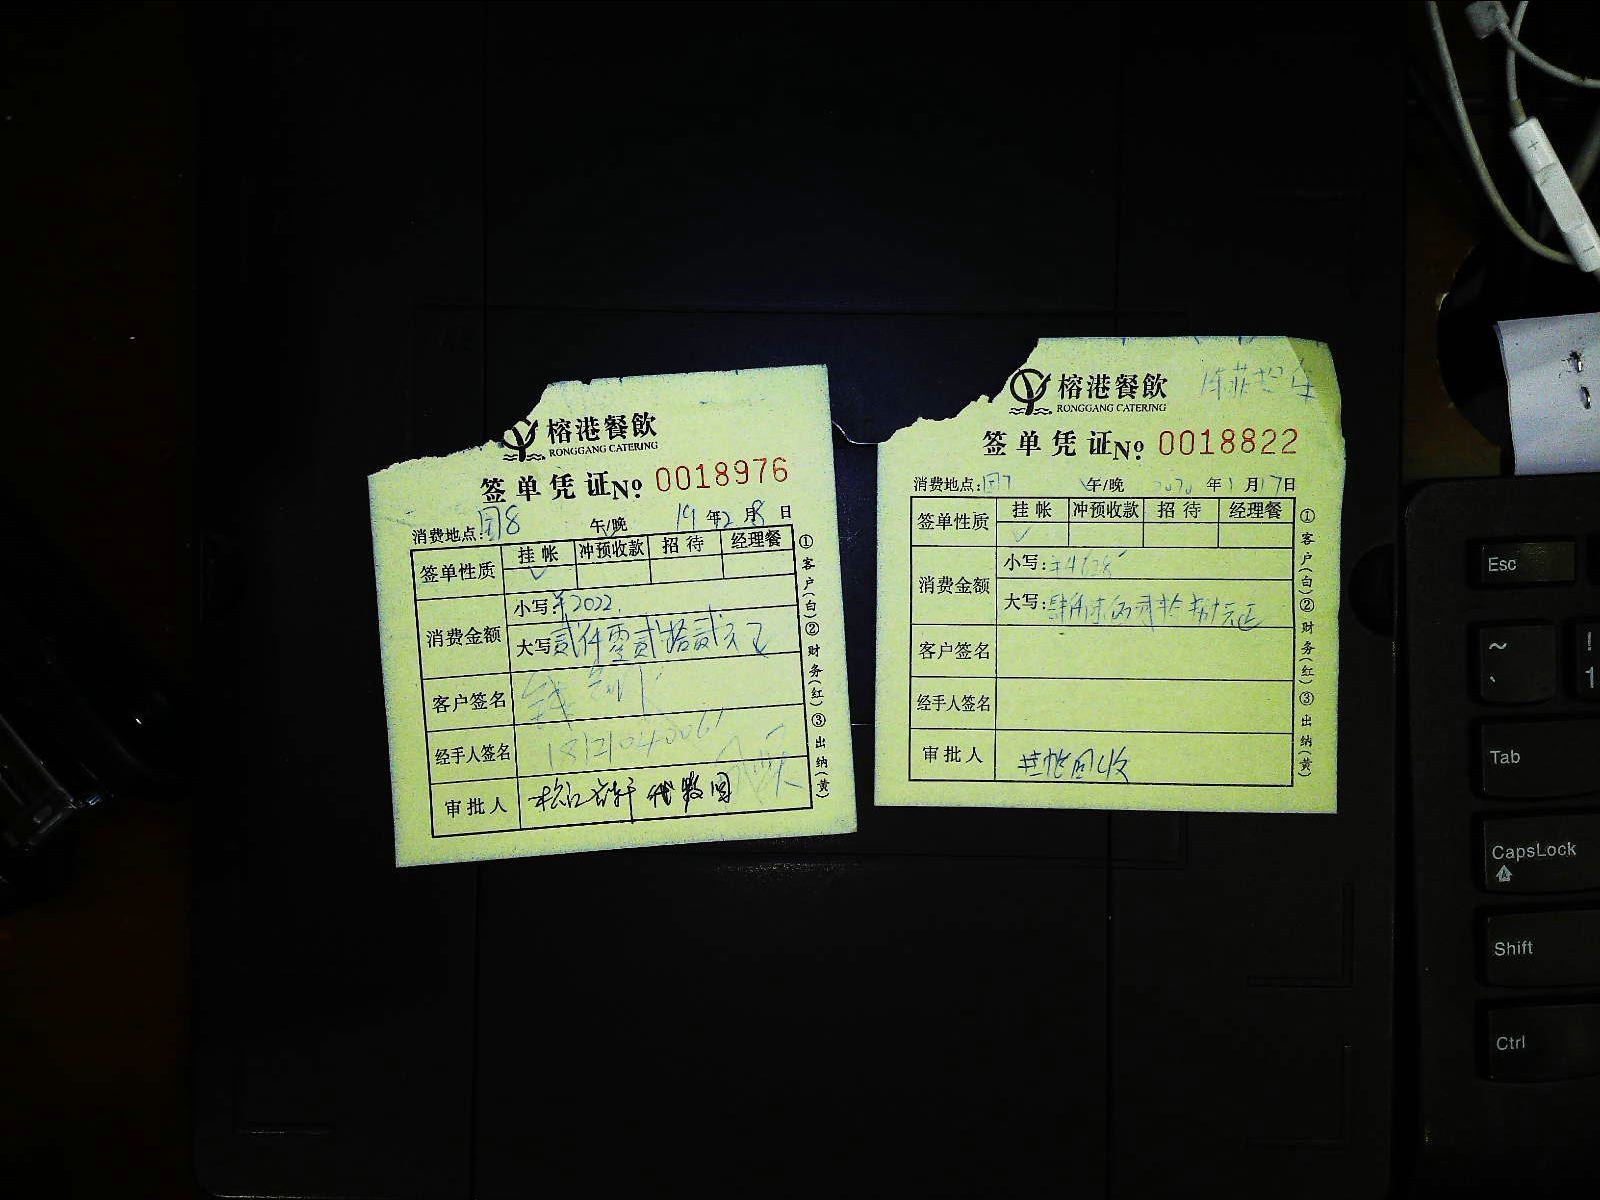 榕港餐飲
RONGGANG CATERING
签单凭证No 0018976
消费地点:团8 午/晚 19年12月8日
签单性质 挂帐 冲预收款 招待 经理餐
✓
消费金额
小写:¥2022.
大写:贰仟零贰拾贰元正
客户签名
经手人签名
审批人
①客户(白)②财务(红)③出纳(黄)
榕港餐飲
RONGGANG CATERING
签单凭证No 0018822
消费地点:团7 午/晚 2020年1月17日
签单性质 挂帐 冲预收款 招待 经理餐
✓
消费金额
小写:¥4628
大写:肆仟陆佰贰拾捌元正
客户签名
经手人签名
审批人 挂帐回收
①客户(白)②财务(红)③出纳(黄)
Esc
~
!
1
Tab
CapsLock
Shift
Ctrl